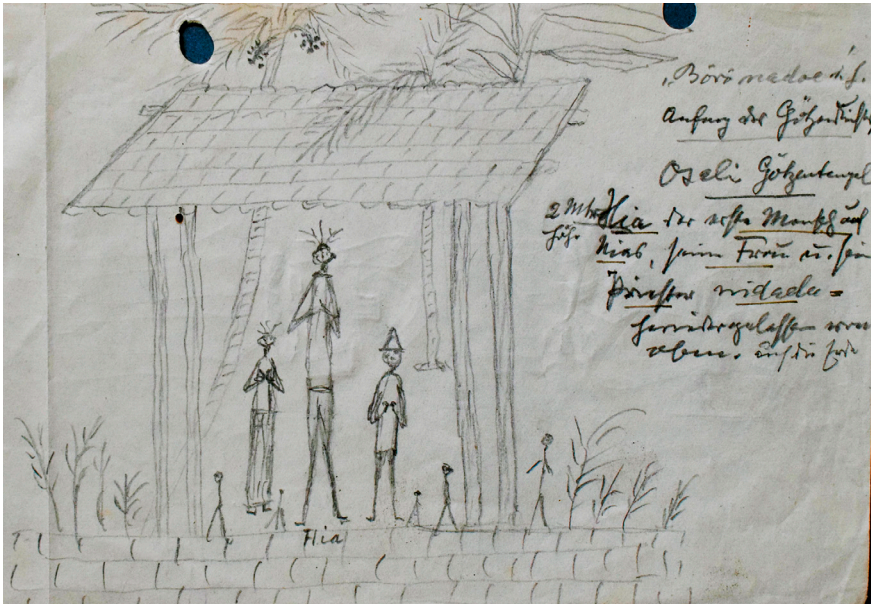 „Börönadoe d. h.
Anfang der Götzendichter
Oseli Götzentempel
2 Mtr Hia der erste Mensch auf
Höhe Nias, seine Frau u. sein
Priester nidada =
heruntergelassen von
oben. auf die Erde
Hia